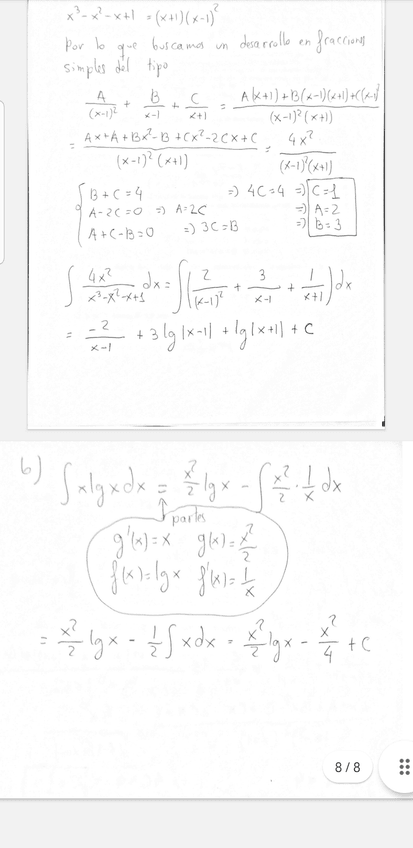 x³-x²-x+1 = (x+1)(x-1)²
Por lo que buscamos un desarrollo en fracciones
simples del tipo
A/(x-1)² + B/x-1 + C/x+1 = A(x+1)+B(x-1)(x+1)+C(x-1)²/(x-1)²(x+1)
= Ax+A+Bx²-B+Cx²-2Cx+C/(x-1)²(x+1) = 4x²/(x-1)²(x+1)
B+C=4 => 4C=4 => C=1
A-2C=0 => A=2C => A=2
A+C-B=0 => 3C=B => B=3
∫ 4x²/x³-x²-x+1 dx = ∫(2/(x-1)² + 3/x-1 + 1/x+1) dx
= -2/x-1 + 3lg|x-1| + lg|x+1| + C
b) ∫xlgxdx = x²/2 lgx - ∫ x²/2 · 1/x dx
↑ partes
g'(x)=x g(x)=x²/2
f(x)=lgx f'(x)=1/x
= x²/2 lgx - 1/2 ∫xdx = x²/2 lgx - x²/4 + C
8/8